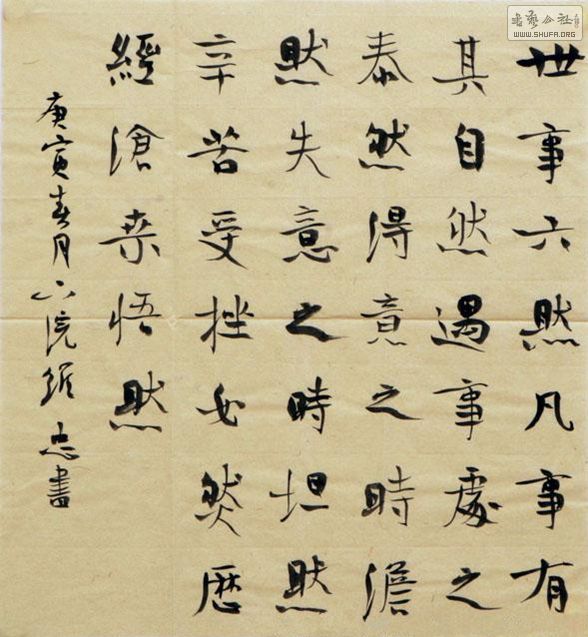 世事六然凡事有
其自然遇事處之
泰然得意之時澹
然失意之時坦然
辛苦受挫必然歷
經滄桒悟然
庚寅春月院忠書
书艺公社
WWW.SHUFA.ORG